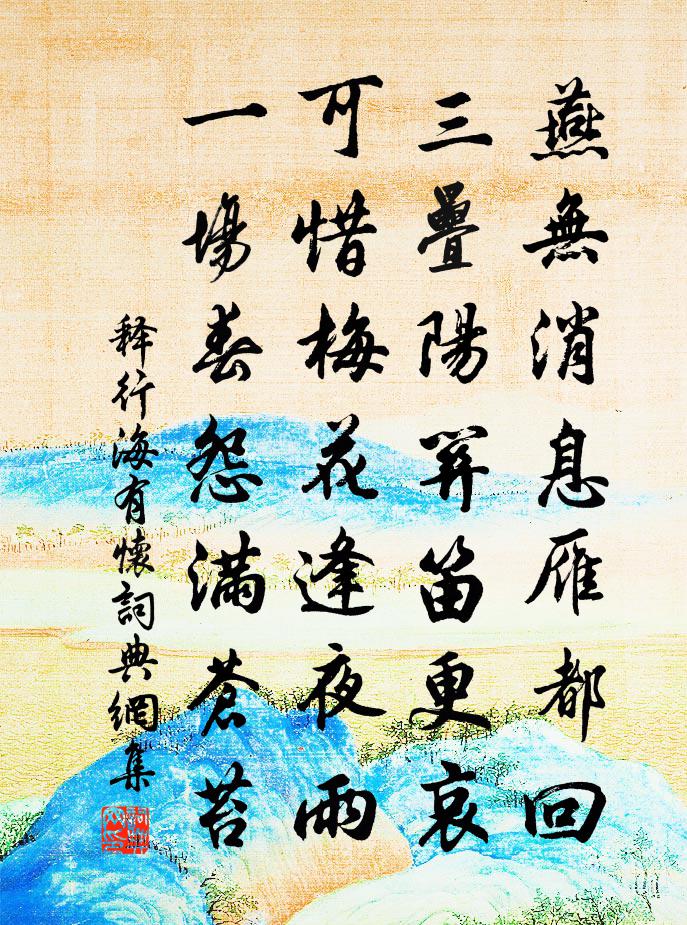 燕無消息雁都回
三疊陽關笛更哀
可惜梅花逢夜雨
一場春怨滿蒼苔
释行海有懷詞典網集